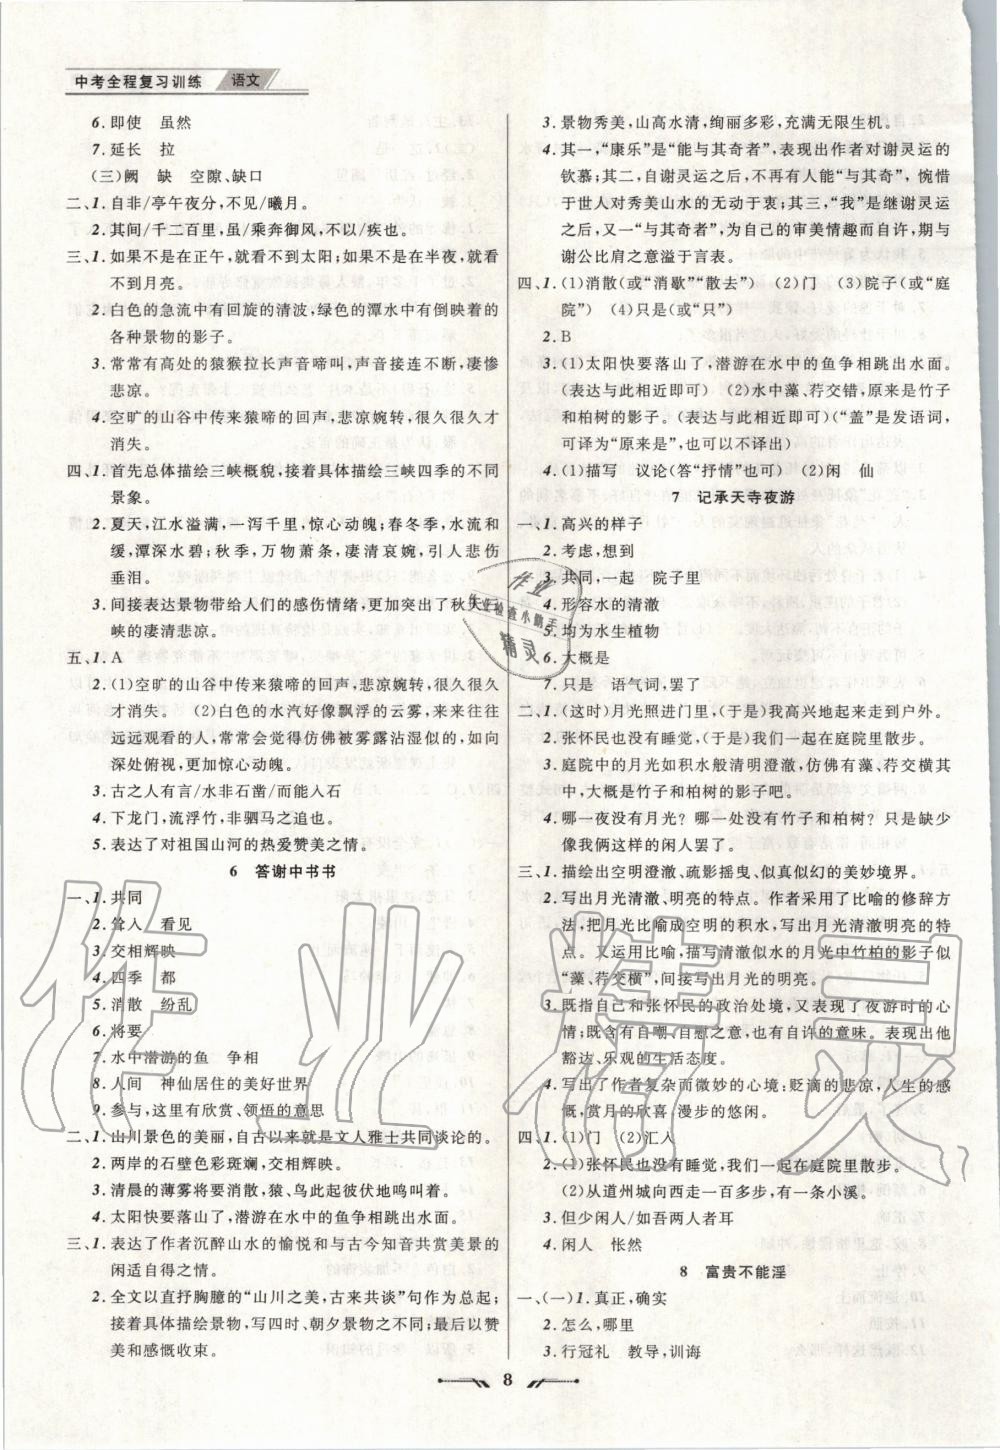 中考全程复习训练 语文
6. 即使　虽然
7. 延长　拉
(三)阙　缺　空隙、缺口
二、1. 自非/亭午夜分，不见/曦月。
2. 其间/千二百里，虽/乘奔御风，不以/疾也。
三、1. 如果不是在正午，就看不到太阳；如果不是在半夜，就看
不到月亮。
2. 白色的急流中有回旋的清波，绿色的潭水中有倒映着的
各种景物的影子。
3. 常常有高处的猿猴拉长声音啼叫，声音接连不断，凄惨
悲凉。
4. 空旷的山谷中传来猿啼的回声，悲凉婉转，很久很久才
消失。
四、1. 首先总体描绘三峡概貌，接着具体描绘三峡四季的不同
景象。
2. 夏天，江水溢满，一泻千里，惊心动魄；春冬季，水流和
缓，潭深水碧；秋季，万物萧条，凄清哀婉，引人悲伤
垂泪。
3. 间接表达景物带给人们的感伤情绪，更加突出了秋天三
峡的凄清悲凉。
五、1. A
2. (1)空旷的山谷中传来猿啼的回声，悲凉婉转，很久很久
才消失。　(2)白色的水汽好像飘浮的云雾，来来往往
远远观看的人，常常会觉得仿佛被雾露沾湿似的，如向
深处俯视，更加惊心动魄。
3. 古之人有言/水非石凿/而能入石
4. 下龙门，流浮竹，非驷马之追也。
5. 表达了对祖国山河的热爱赞美之情。
6　答谢中书书
一、1. 共同
2. 耸入　看见
3. 交相辉映
4. 四季　都
5. 消散　纷乱
6. 将要
7. 水中潜游的鱼　争相
8. 人间　神仙居住的美好世界
9. 参与，这里有欣赏、领悟的意思
二、1. 山川景色的美丽，自古以来就是文人雅士共同谈论的。
2. 两岸的石壁色彩斑斓，交相辉映。
3. 清晨的薄雾将要消散，猿、鸟此起彼伏地鸣叫着。
4. 太阳快要落山了，潜游在水中的鱼争相跳出水面。
三、1. 表达了作者沉醉山水的愉悦和与古今知音共赏美景的
闲适自得之情。
2. 全文以直抒胸臆的“山川之美，古来共谈”句作为总起；
接着具体描绘景物，写四时、朝夕景物之不同；最后以赞
美和感慨收束。
3. 景物秀美，山高水清，绚丽多彩，充满无限生机。
4. 其一，“康乐”是“能与其奇者”，表现出作者对谢灵运的
钦慕；其二，自谢灵运之后，不再有人能“与其奇”，惋惜
于世人对秀美山水的无动于衷；其三，“我”是继谢灵运
之后，又一“与其奇”者，为自己的审美情趣而自许，期与
谢公比肩之意溢于言表。
四、1. (1)消散(或“消歇”“散去”)　(2)门　(3)院子(或“庭
院”)　(4)只是(或“只”)
2. B
3. (1)太阳快要落山了，潜游在水中的鱼争相跳出水面。
(表达与此相近即可)　(2)水中藻、荇交错，原来是竹子
和柏树的影子。(表达与此相近即可)(“盖”是发语词，
可译为“原来是”，也可以不译出)
4. (1)描写　议论(答“抒情”也可)　(2)闲　仙
7　记承天寺夜游
一、1. 高兴的样子
2. 考虑，想到
3. 共同，一起　院子里
4. 形容水的清澈
5. 均为水生植物
6. 大概是
7. 只是　语气词，罢了
二、1. (这时)月光照进门里，(于是)我高兴地起来走到户外。
2. 张怀民也没有睡觉，(于是)我们一起在庭院里散步。
3. 庭院中的月光如积水般清明澄澈，藻、荇交横其
中，大概是竹子和柏树的影子吧。
4. 哪一夜没有月光？哪一处没有竹子和柏树？只是缺少
像我俩这样的闲人罢了。
三、1. 描绘出空明澄澈、疏影摇曳、似真似幻的美妙境界。
2. 写出月光清澈、明亮的特点。作者采用了比喻的修辞方
法，把月光比喻成空明的积水，写出月光的清澈明亮的特
点。又运用比喻，描写清澈似水的月光中竹柏的影子似
“藻、荇交横”，间接写出月光的明亮。
3. 既指自己和张怀民的政治处境，又表现了夜游时的心
情；既含有自嘲、自慰之意，也有自许的意味。表现出他
豁达、乐观的生活态度。
4. 写出了作者复杂而微妙的心境：贬谪的悲凉，人生的感
慨，赏月的欣喜，漫步的悠闲。
四、1. (1)门　(2)汇入
2. (1)张怀民也没有睡觉，我们一起在庭院里散步。
(2)从道州城向西走一百多步，有一条小溪。
3. 但少闲人/如吾两人者耳
4. 闲人　怅然
8　富贵不能淫
一、(一)1. 真正，确实
2. 怎么，哪里
3. 行冠礼　教导，训诲
8
作业
作业检查小助手
精灵
作业精灵